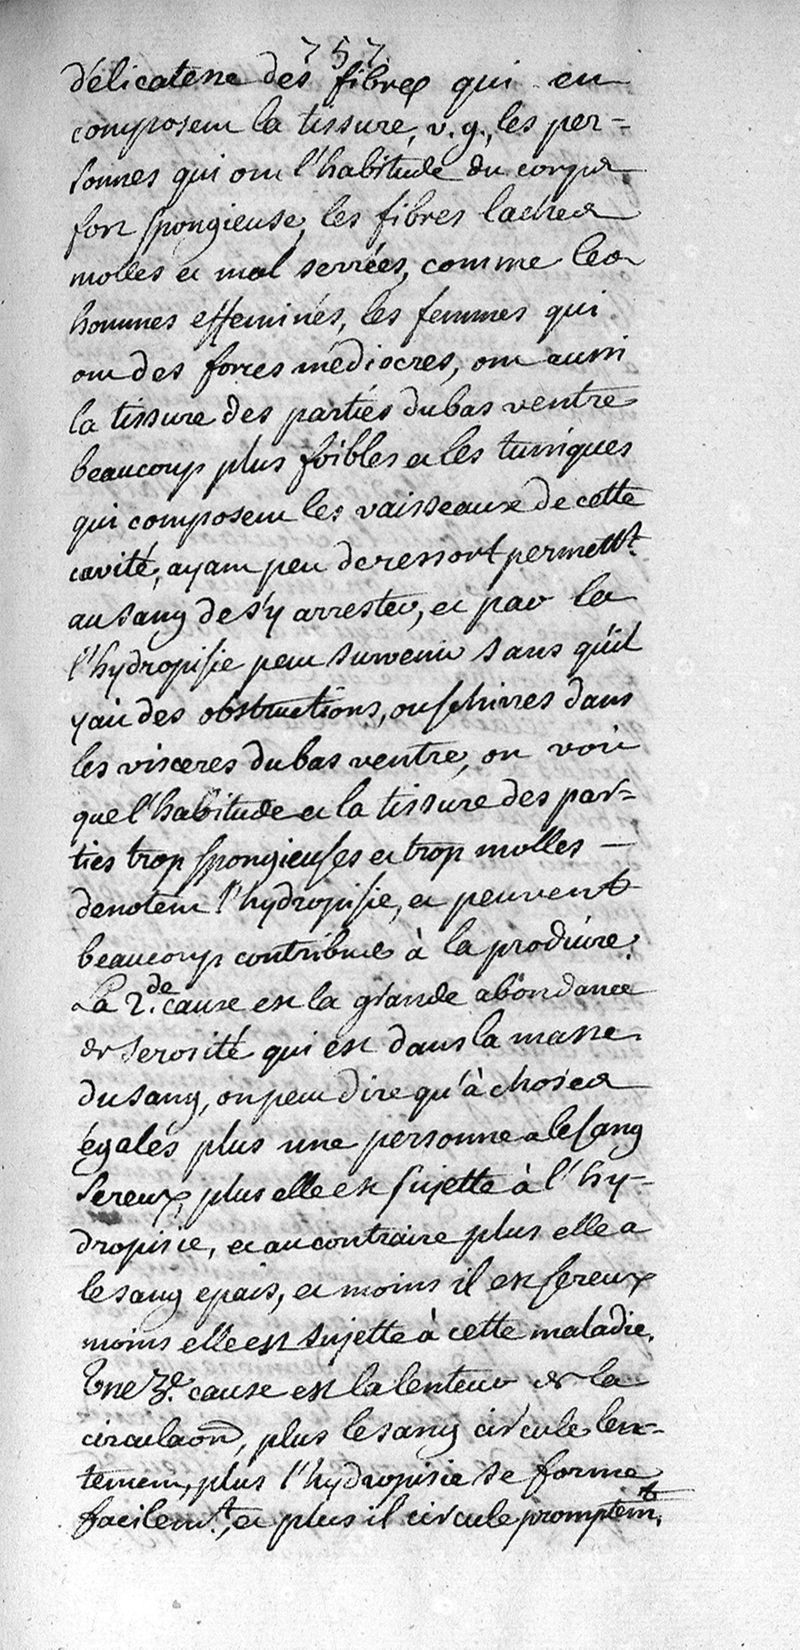 757
délicatesse des fibres qui en
composent la tissure, v. g., les per=
sonnes qui ont l'habitude du corps
fort spongieuse, les fibres laches
molles et mal serrées, comme les
hommes effeminés, les femmes qui
ont des forces médiocres, ont aussi
la tissure des parties du bas ventre
beaucoup plus foibles et les tuniques
qui composent les vaisseaux de cette
cavité, ayant peu de ressort permettt.
au sang de s'y arrester, et par la
l'hydropisie peut survenir sans qu'il
y ait des obstructions, ou schirres dans
les visceres du bas ventre, on voit
que l'habitude et la tissure des par=
ties trop spongieuses et trop molles —
denotent l'hydropisie, et peuvent
beaucoup contribuer à la produire.
La 2.de cause est la grande abondance
de serosité qui est dans la masse
du sang, on peut dire qu'à choses
égales plus une personne a le sang
sereux, plus elle est sujette à l'hy-
dropisie, et au contraire plus elle a
le sang epais, et moins il est sereux
moins elle est sujette à cette maladie.
Une 3e. cause est la lenteur de la
circulaon, plus le sang circule len-
tement, plus l'hydropisie se forme
facilem.t, et plus il circule promptemt.